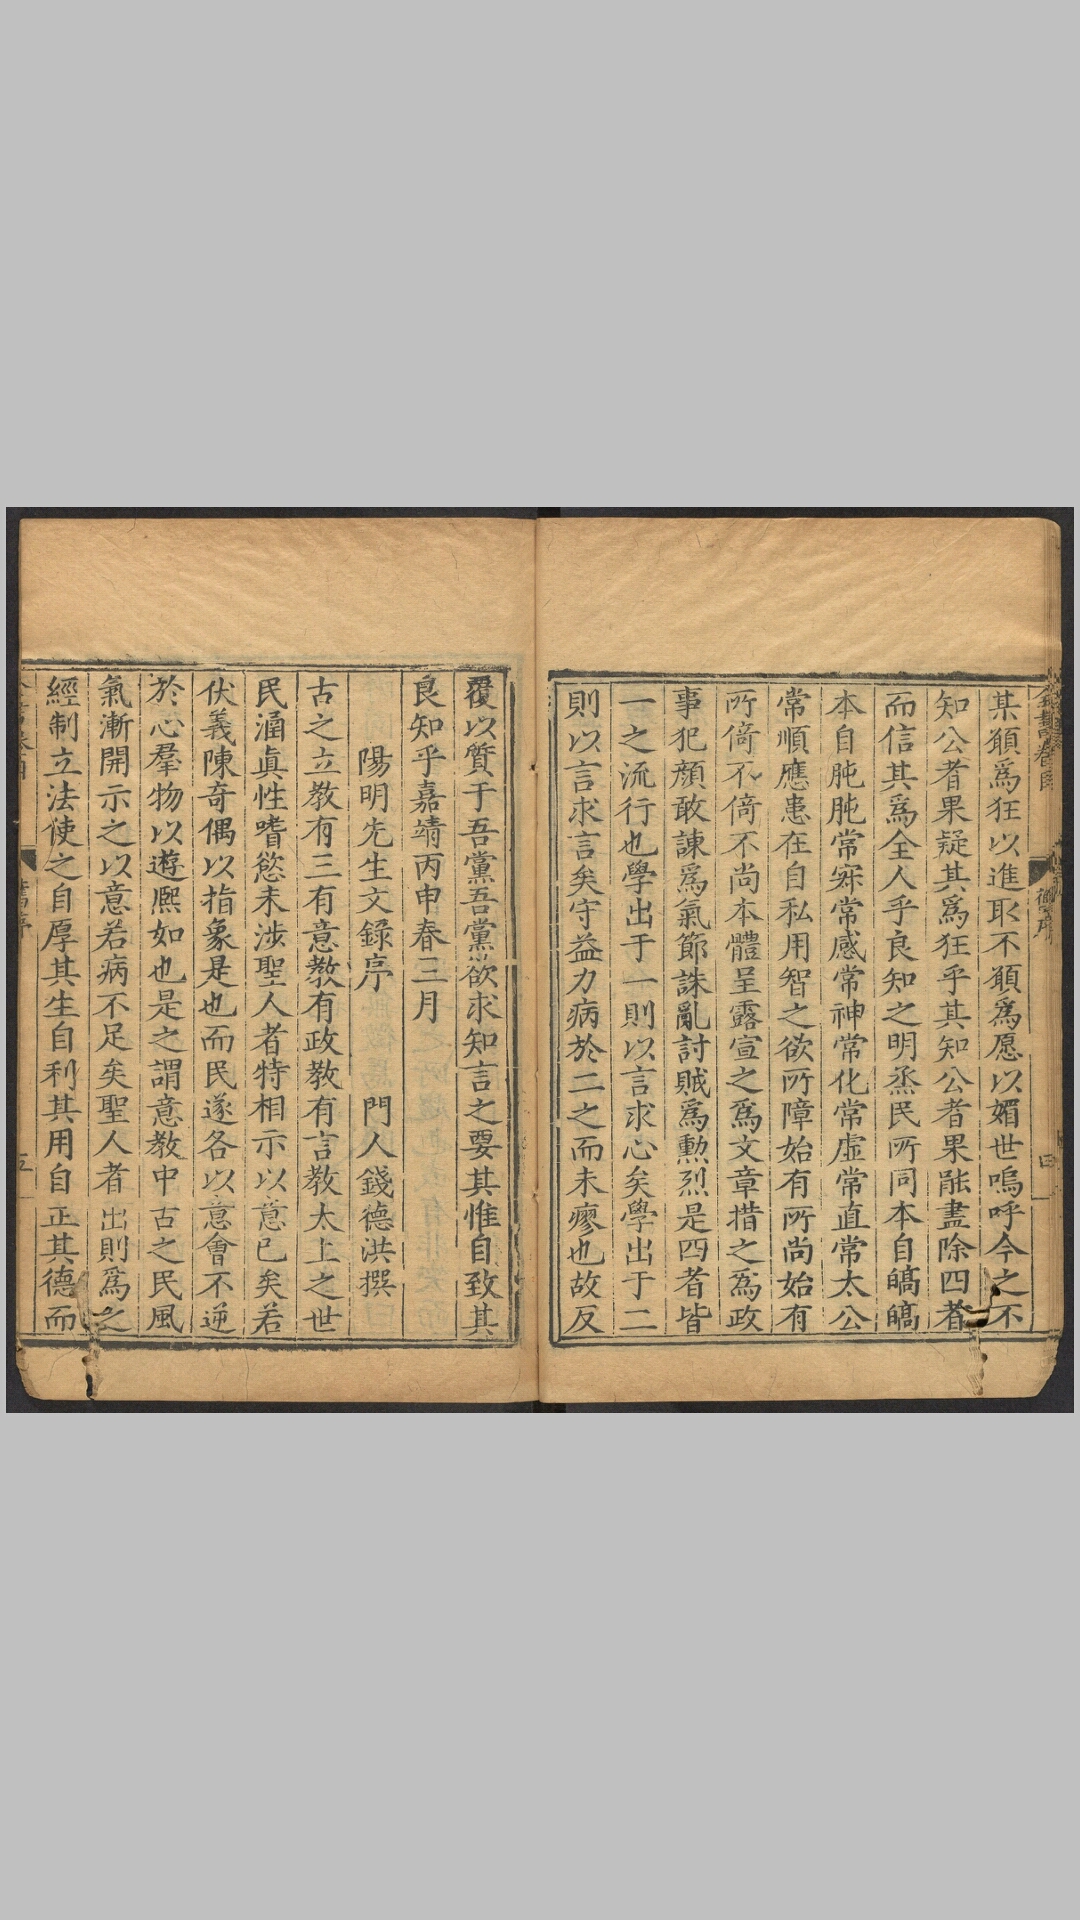 某願爲狂以進取不願爲愿以媚世嗚呼今之不
知公者果疑其爲狂乎其知公者果能盡除四者
而信其爲全人乎良知之明烝民所同本自皜皜
本自肫肫常寂常感常神常化常虛常直常太公
常順應患在自私用智之欲所障始有所尚始有
所倚不倚不尚本體呈露宣之爲文章措之爲政
事犯顏敢諫爲氣節誅亂討賊爲勲烈是四者皆
一之流行也學出于一則以言求心矣學出于二
則以言求言矣守益力病於二之而未瘳也故反
覆以質于吾黨吾黨欲求知言之要其惟自致其
良知乎嘉靖丙申春三月
陽明先生文錄序 門人錢德洪撰
古之立教有三有意教有政教有言教太上之世
民涵眞性嗜慾未涉聖人者特相示以意已矣若
伏義陳奇偶以指象是也而民遂各以意會不逆
於心羣物以遊熈如也是之謂意教中古之民風
氣漸開示之以意若病不足矣聖人者出則爲之
經制立法使之自厚其生自利其用自正其德而